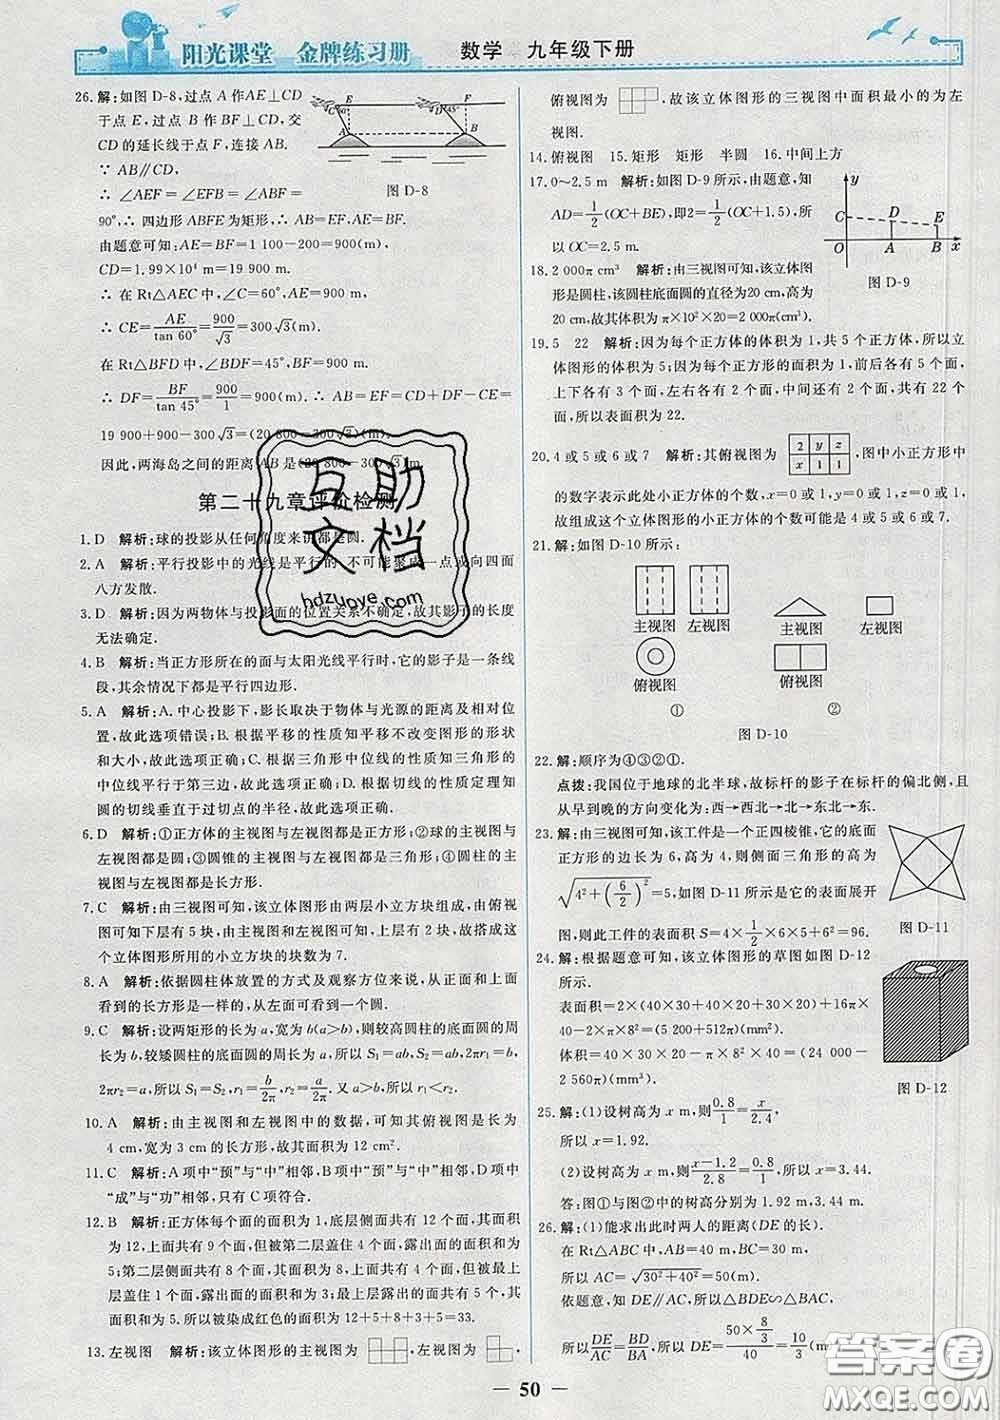 阳光课堂 金牌练习册 数学 九年级下册
26.解:如图 D-8,过点 A 作AE⊥CD
于点 E,过点 B 作 BF⊥CD,交
CD 的延长线于点 F,连接 AB.
∵ AB∥CD,
∴ ∠AEF = ∠EFB = ∠ABF =
90°,∴ 四边形 ABFE 为矩形,∴ AB=EF,AE=BF.
由题意可知:AE=BF=1 100-200=900(m),
CD=1.99×10⁴ m=19 900 m.
∴ 在 Rt△AEC 中,∠C=60°,AE=900 m,
∴ CE=AE/tan 60°=900/√3=300√3(m).
在 Rt△BFD 中,∠BDF=45°,BF=900 m.
∴ DF=BF/tan 45°=900/1=900(m). ∴ AB=EF=CD+DF-CE=
19 900+900-300√3=(20 800-300√3)m.
因此,两海岛之间的距离 AB 是(20 800-300√3)m.
图 D-8
第二十九章评价检测
1.D 解析:球的投影从任何角度来说都是圆.
2.A 解析:平行投影中的光线是平行的,不可能聚成一点或向四面
八方发散.
3.D 解析:因为两物体与投影面的位置关系不确定,故其影子的长度
无法确定.
4.B 解析:当正方形所在的面与太阳光线平行时,它的影子是一条线
段,其余情况下都是平行四边形.
5.A 解析:A.中心投影下,影长取决于物体与光源的距离及摆放位置,
故此选项错误;B.根据平移的性质知平移不改变图形的形状
和大小,故此选项正确;C.根据三角形中位线的性质知三角形的
中位线平行于第三边,故此选项正确;D.根据切线的性质定理知
圆的切线垂直于过切点的半径,故此选项正确.
6.D 解析:①正方体的主视图与左视图都是正方形;②球的主视图与
左视图都是圆;③圆锥的主视图与左视图都是三角形;④圆柱的主
视图与左视图都是长方形.
7.C 解析:由三视图可知,该立体图形由两层小立方块组成,由俯视
图可知下层有 5 块,由主视图和左视图可知,上层有 2 块,故搭成
这个立体图形所用的小立方块的块数为 7.
8.A 解析:依据圆柱体放置的方式及观察方位来看,从正面和上面
看到的长方形是一样的,从左面可看到一个圆.
9.C 解析:设两矩形的长为 a,宽为 b(a>b),则较高圆柱的底面圆的周
长为 b,较矮圆柱的底面圆的周长为 a,所以 S₁=ab,S₂=ab,2πr₁=b,
2πr₂=a,所以 S₁=S₂,r₁=b/2π,r₂=a/2π.又 a>b,所以 r₁<r₂.
10.A 解析:由主视图和左视图中的数据,可知其俯视图是长为
4 cm,宽为 3 cm 的长方形,故其面积为 12 cm².
11.C 解析:A 项中“预”与“中”相邻,B 项中“预”与“中”相邻,D 项中
“成”与“功”相邻,只有 C 项符合.
12.B 解析:正方体每个面的面积为 1,底层侧面共有 12 个面,其面积
为 12,上面共有 9 个面,但被第二层盖住 4 个,露出面的面积和为
5;第二层侧面共有 8 个面,其面积和为 8,上面共有 4 个面,但被最
上层盖住 1 个,露出面的面积和为 3;最上层露出面共有 5 个,其
面积和为 5.所以被染成红色的面积为 12+5+8+3+5=33.
13.左视图 解析:该立体图形的主视图为 ,左视图为 ,
俯视图为 ,故该立体图形的三视图中面积最小的为左
视图.
14.俯视图 15.矩形 矩形 半圆 16.中间上方
17.0~2.5 m 解析:如图 D-9 所示,由题意,知
AD=1/2(OC+BE),即2=1/2(OC+1.5),所
以 OC=2.5 m.
y
C D E
O A B x
图 D-9
18.2 000π cm³ 解析:由三视图可知,该立体图
形是圆柱,该圆柱底面圆的直径为20 cm,高为
20 cm,故其体积为 π×10²×20=2 000π(cm³).
19.5 22 解析:因为每个正方体的体积为 1,共 5 个正方体,所以立
体图形的体积为 5;因为每个正方形的面积为 1,前后各有 5 个面,
上下各有 3 个面,左右各有 2 个面,中间还有 2 个面,共有 22 个
面,所以表面积为 22.
20.4 或 5 或 6 或 7 解析:其俯视图为 2 y z x 1 1 ,图中小正方形中
的数字表示此处小正方体的个数,x=0 或 1,y=0 或 1,z=0 或 1,
故组成这个立体图形的小正方体的个数可能是 4 或 5 或 6 或 7.
21.解:如图 D-10 所示:
主视图 左视图 主视图 左视图
俯视图 俯视图
① ②
图 D-10
22.解:顺序为④③②①.
点拨:我国位于地球的北半球,故标杆的影子在标杆的偏北侧,且
从早到晚的方向变化为:西→西北→北→东北→东.
23.解:由三视图可知,该工件是一个正四棱锥,它的底面
正方形的边长为 6,高为 4,则侧面三角形的高为
√(4²+(6/2)²)=5,如图 D-11 所示是它的表面展开
图,则此工件的表面积 S=4×1/2×6×5+6²=96.
图 D-11
24.解:根据题意可知,该立体图形的草图如图 D-12
所示.
表面积=2×(40×30+40×20+30×20)+16π×
20-8²×2π=(5 200+512π)(mm²).
体积=40×30×20-π×8²×40=(24 000-
2 560π)(mm³).
图 D-12
25.解:(1)设树高为 x m,则0.8/1=x/2.4,
所以 x=1.92.
(2)设树高为 x m,则(x-1.2)/2.8=0.8/1,所以 x=3.44.
答:图①与图②中的树高分别为 1.92 m,3.44 m.
26.解:(1)能求出此时两人的距离(DE 的长).
在 Rt△ABC 中,AB=40 m,BC=30 m,
所以 AC=√(30²+40²)=50(m).
依题意,知 DE∥AC,所以△BDE∽△BAC,
所以DE/AC=BD/BA,所以 DE=(50×8/3)/40=10/3(m).
50
互助
文档
hdzuoye.com
答案圈
MXQE.COM